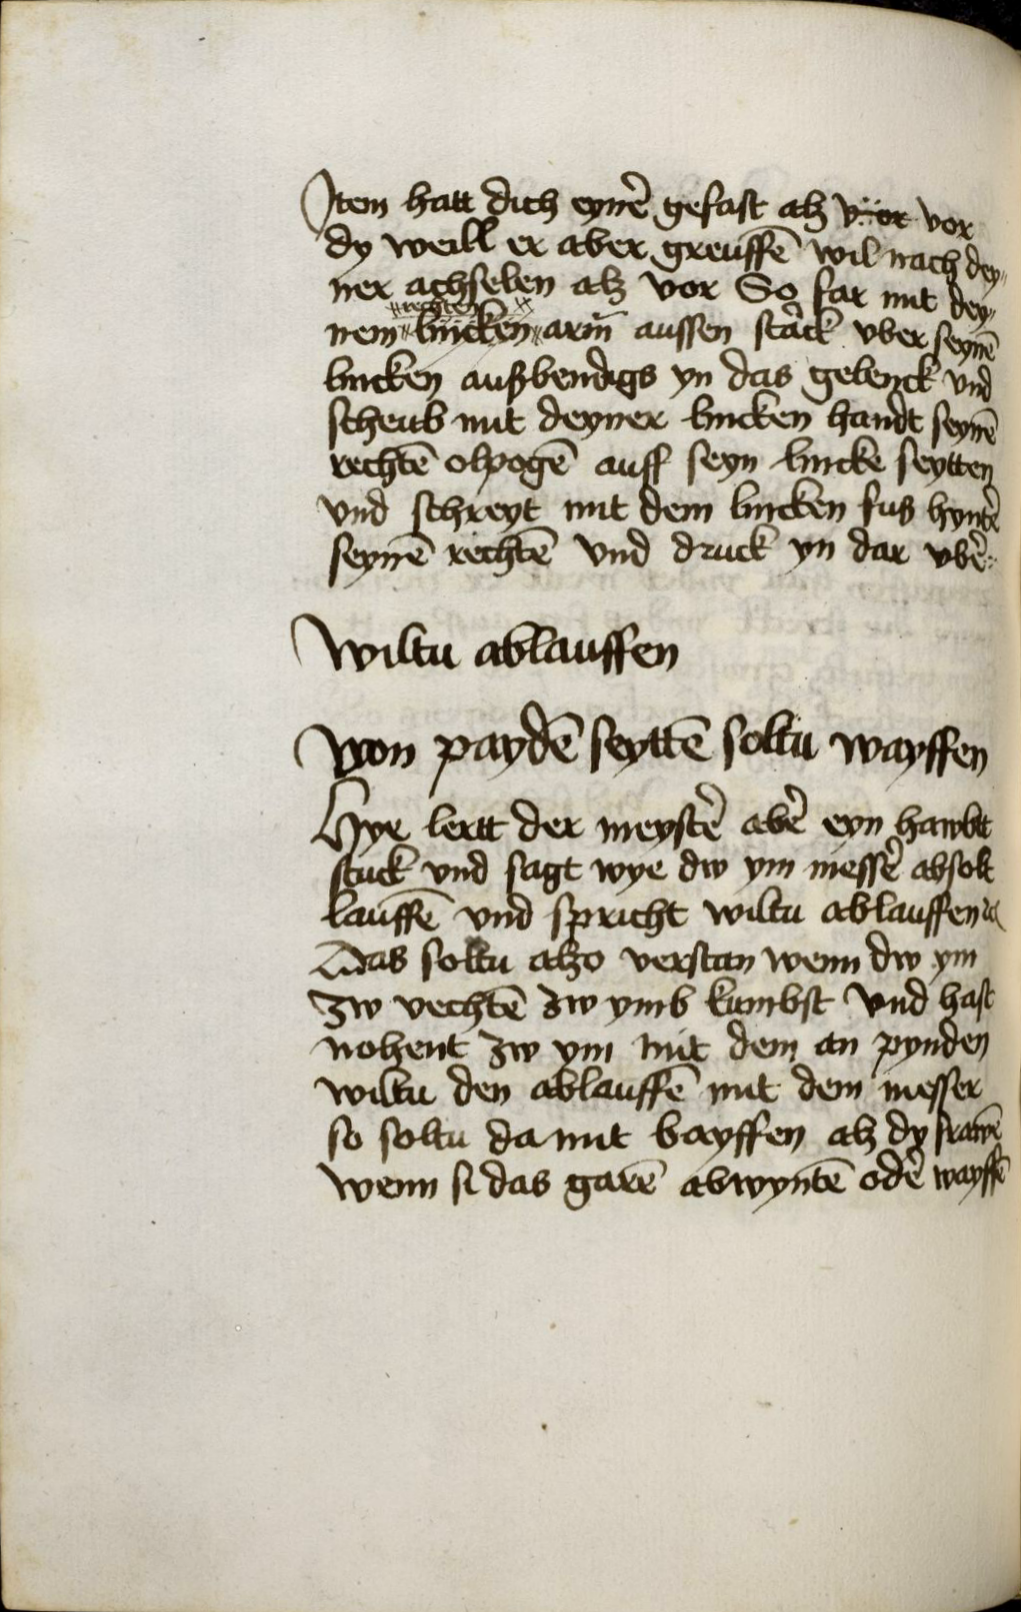 Item hatt dich eynē gefast alz vor vor
dy weill er aber greuffē wil nach dey„
ner achselen alz vor So far mit dey„
rechten
nem lincken arm̄ aussen starck vber seynē
lincken außbendigs yn das gelenck vnd
scheub mit deyner lincken handt seynē
rechtē olpogē auff seyn lincke seytten
vnd schreyt mit dem lincken fuß hyntē
seynē rechtē vnd druck yn dar vbē
Wiltu ablauffen
Von paydē seyttē soltu wayffen
Hye lertt der meystē abē eyn hawbtt
stuck vnd sagt wye dw ym messē absolt
lauffē vnd spricht wiltu ablauffen
Das soltu alzo verstan wenn dw ym
zw vechtē zw ymb kumbst vnd hast
nohent zw ym mit dem an pynden
wiltu den ablauffē mit dem messer
so soltu da mit bayffen alz dy frawē
wenn si das garē abwyntē odē wayffē